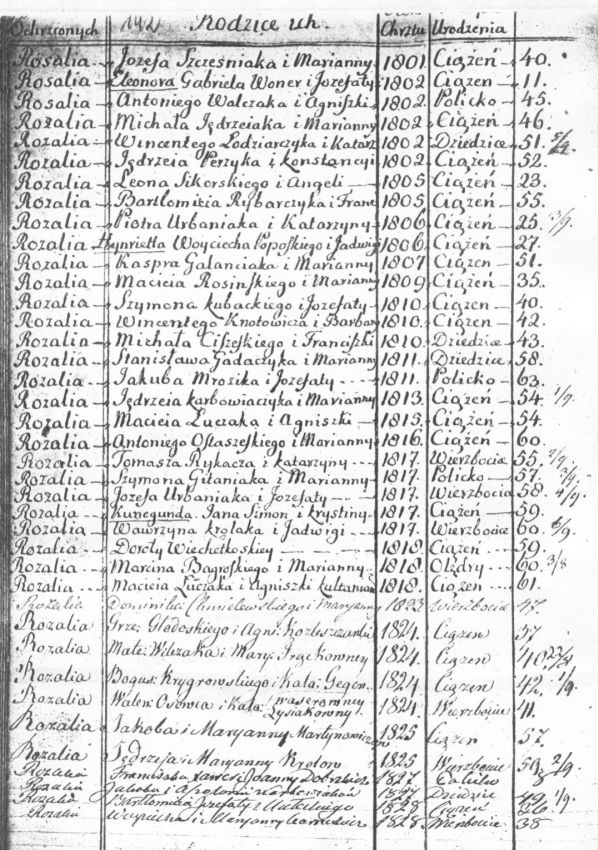 Ochrzconych 142 Rodzice ich. Chrztu Urodzenia
Rosalia Jozefa Szcześniaka i Marianny 1801 Ciążeń 40.
Rosalia Eleonora Gabriela Woner i Jozefaty 1802 Ciążeń 11.
Rosalia Antoniego Walczaka i Agniszki 1802. Policko 45.
Rozalia Michała Jędrzeiaka i Marianny 1802 Ciążeń 46.
Rozalia Wincentego Łodziarczyka i Katarz 1802 Dziedzice 51.
Rozalia Jędrzeia Perzyka i konstancyi 1802 Ciążeń 52.
Rozalia Leona Sikorskiego i Angeli 1805 Ciążeń 23.
Rozalia Bartłomieia Rybarczyka i Franc 1805 Ciążeń 55.
Rozalia Piotra Urbaniaka i Katarzyny 1806 Ciążeń 25. 3/9.
Rozalia Hynrietta Woyciecha Popoſkiego i Jadwig 1806. Ciążeń 27.
Rozalia Kaspra Galanciaka i Marianny 1807 Ciążen 51.
Rozalia Macieia Rosinſkiego i Marianny 1809 Ciążeń 35.
Rozalia Szymona kubackiego i Jozefaty 1810. Ciążen 40.
Rozalia Wincentego Knotowicza i Barbar 1810. Ciążen 42.
Rozalia Michała Ciſzeſkiego i Franciſzki 1810. Dziedzice 43.
Rozalia Stanisława Gadaczyka i Marianny 1811. Dziedzice 58.
Rozalia Jakuba Mrozika i Jozefaty 1811. Policko 63.
Rozalia Jędrzeia karbowiaczyka i Marianny 1813. Ciążeń 54. 1/9.
Rozalia Macieia Łuczaka i Agniszki 1815. Ciążeń 54.
Rozalia Antoniego Oſtaszeſkiego i Marianny 1816. Ciążeń 60.
Rozalia Tomasza Rykacza i katarzyny 1817. Wierzbocice 55. 2/9.
Rozalia Szymona Gitaniaka i Marianny 1817. Policko 57. 2/9.
Rozalia Jozefa Urbaniaka i Jozefaty 1817. Wierzbocice 58. 4/9.
Rozalia Kunegunda. Jana Simon i krystiny 1817. Ciążeń 59.
Rozalia Wawrzyna krolaka i Jadwigi 1817. Wierzbocice 60.
Rozalia Doroty Wiechetkoskiey 1818. Ciążeń 59.
Rozalia Marcina Bagroſkiego i Marianny 1818. Olędry 60. 3/8
Rozalia Macieia Łuczaka i Agniszki kultaniak 1818. Ciążen 61.
Rozalia Dominika Chmielewskiego i Maryanny 1823 Wierzbocice 47.
Rozalia Grze: Głodoskiego i Agni: 1824. Ciążen 37
Rozalia Mate: Wilczaka i Mary: 1824. Ciążen
Rozalia Bogus: Krygrowskiego i Kata: Gegen 1824 Ciążen 42. 1/9.
Rozalia Walen: Osowia i Kata: 1824. Wierzbocice 41.
Łysiakowny
Rozalia Jakoba i Maryanny Martynowiczow 1825 Ciążen 57.
Rozalia Jędrzeja i Maryanny Krolow 1825 Wierzbocice 59. 2/9
Rozalia Franciszka Joanny 1827
Rozalia Jakoba i Apolonii Dziedzic 1/9.
Rozalia Bartłomia Jozefaty 1828 Ciążen
Rozalia Woyciecha i Maryanny 1828. 38